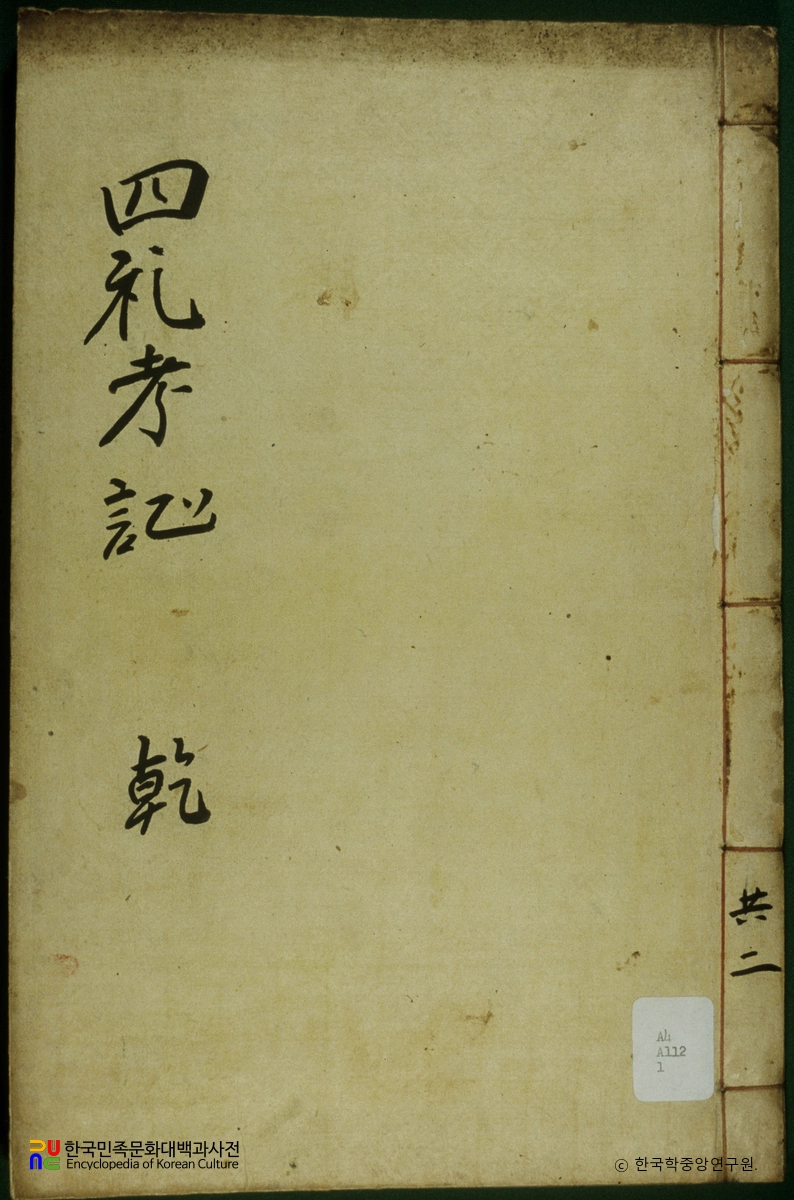 四礼考証 乾
共二
A4
A112
1
한국민족문화대백과사전
Encyclopedia of Korean Culture
© 한국학중앙연구원.